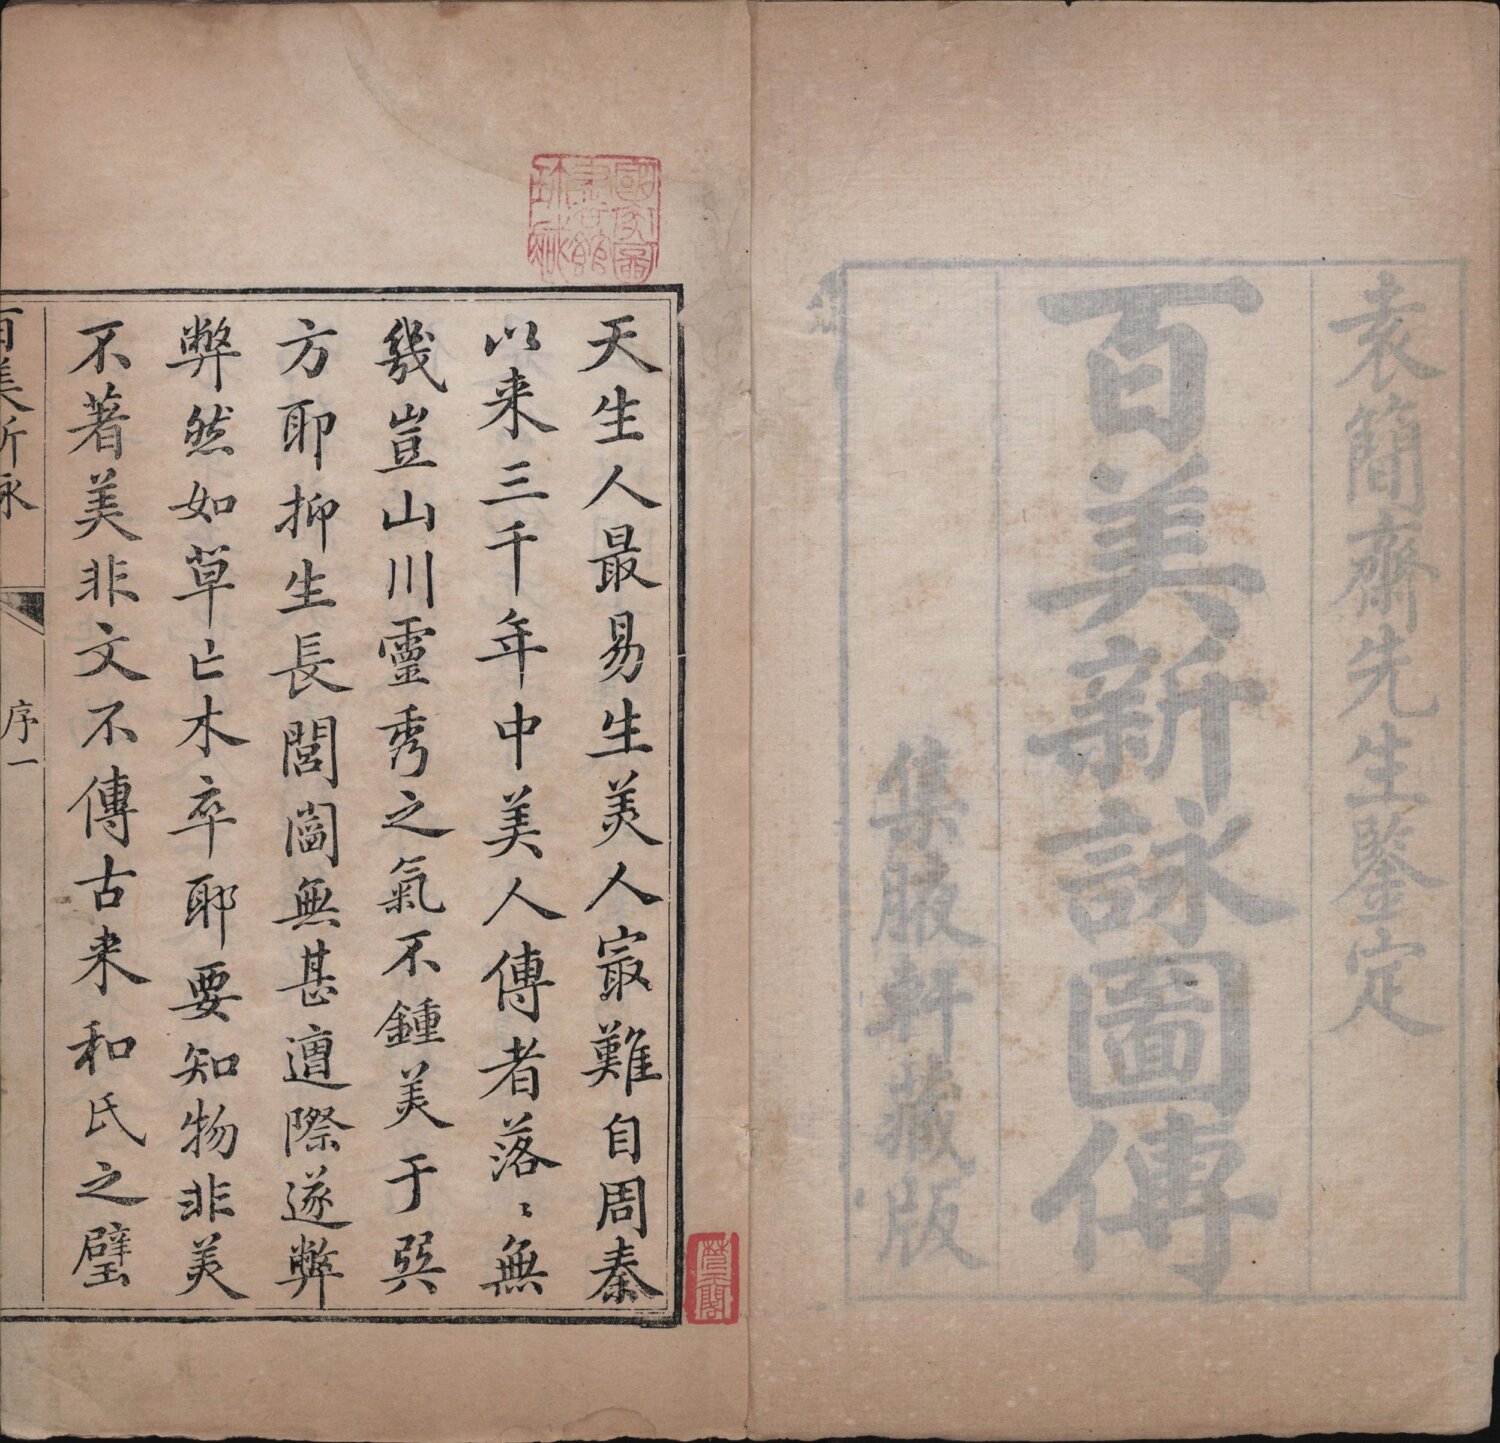 袁簡齋先生鑒定
百美新詠圖傳
集腋軒藏版
國家圖
書館
珎藏
天生人最易生美人㝡難自周秦
以来三千年中美人傳者落〻無
幾豈山川靈秀之氣不鍾美于巽
方耶抑生長閨闈無甚遭際遂弊
弊然如草亡木卒耶要知物非美
不著美非文不傳古来和氏之璧
百美新詠
序一